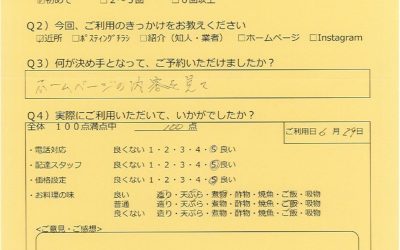 Q2）今回、ご利用のきっかけをお教えください
☑近所 □ﾎﾟｽﾃｨﾝｸﾞﾁﾗｼ □紹介（知人・業者） □ホームページ □Instagram
Q3）何が決め手となって、ご予約いただけましたか？
ホームページの内容を見て
Q4）実際にご利用いただいて、いかがでしたか？
全体 １００点満点中 100 点
ご利用日 6 月 29日
・電話対応 良くない 1・2・3・4・5 良い
・配達スタッフ 良くない 1・2・3・4・5 良い
・価格設定 良くない 1・2・3・4・5 良い
・お料理の味 良い 造り・天ぷら・煮物・酢物・焼魚・ご飯・吸物
普通 造り・天ぷら・煮物・酢物・焼魚・ご飯・吸物
良くない 造り・天ぷら・煮物・酢物・焼魚・ご飯・吸物
＜ご意見・ご感想＞